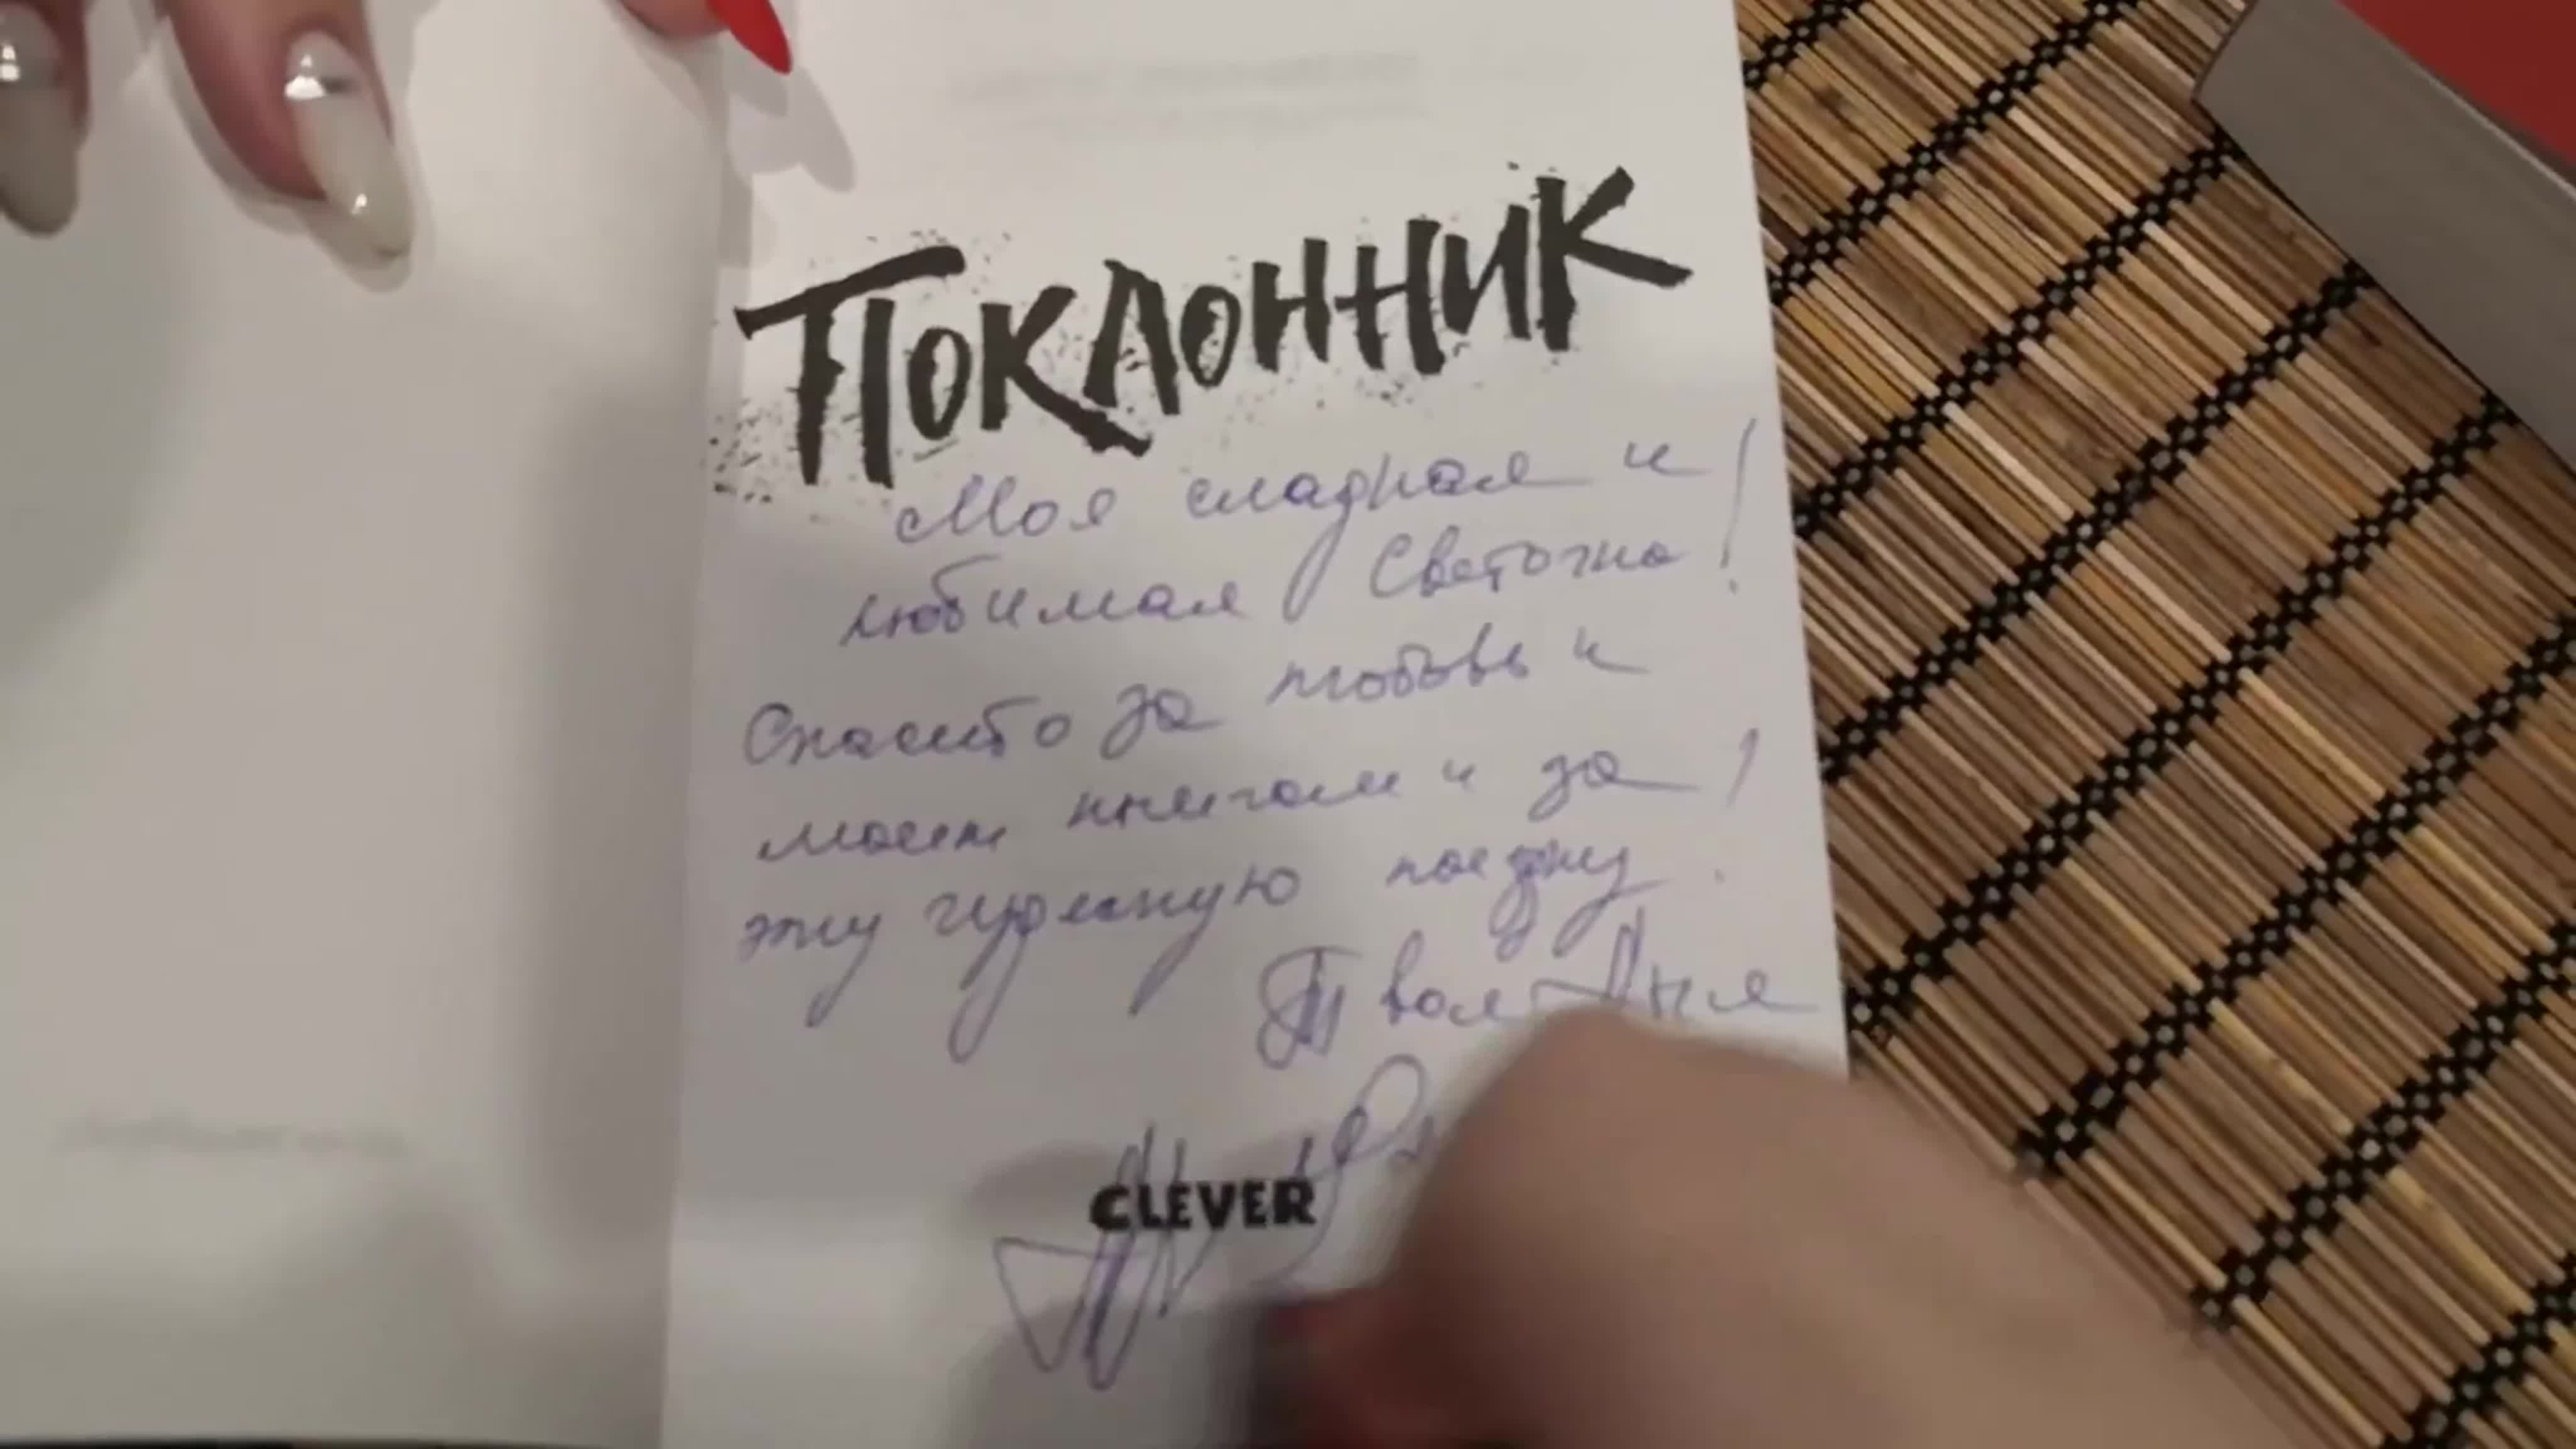 Поклонник
Моя сладкая и
любимая Светочка!
Спасибо за любовь к
моим книгам и за
эту чудесную поездку!
Твоя Аня
CLEVER